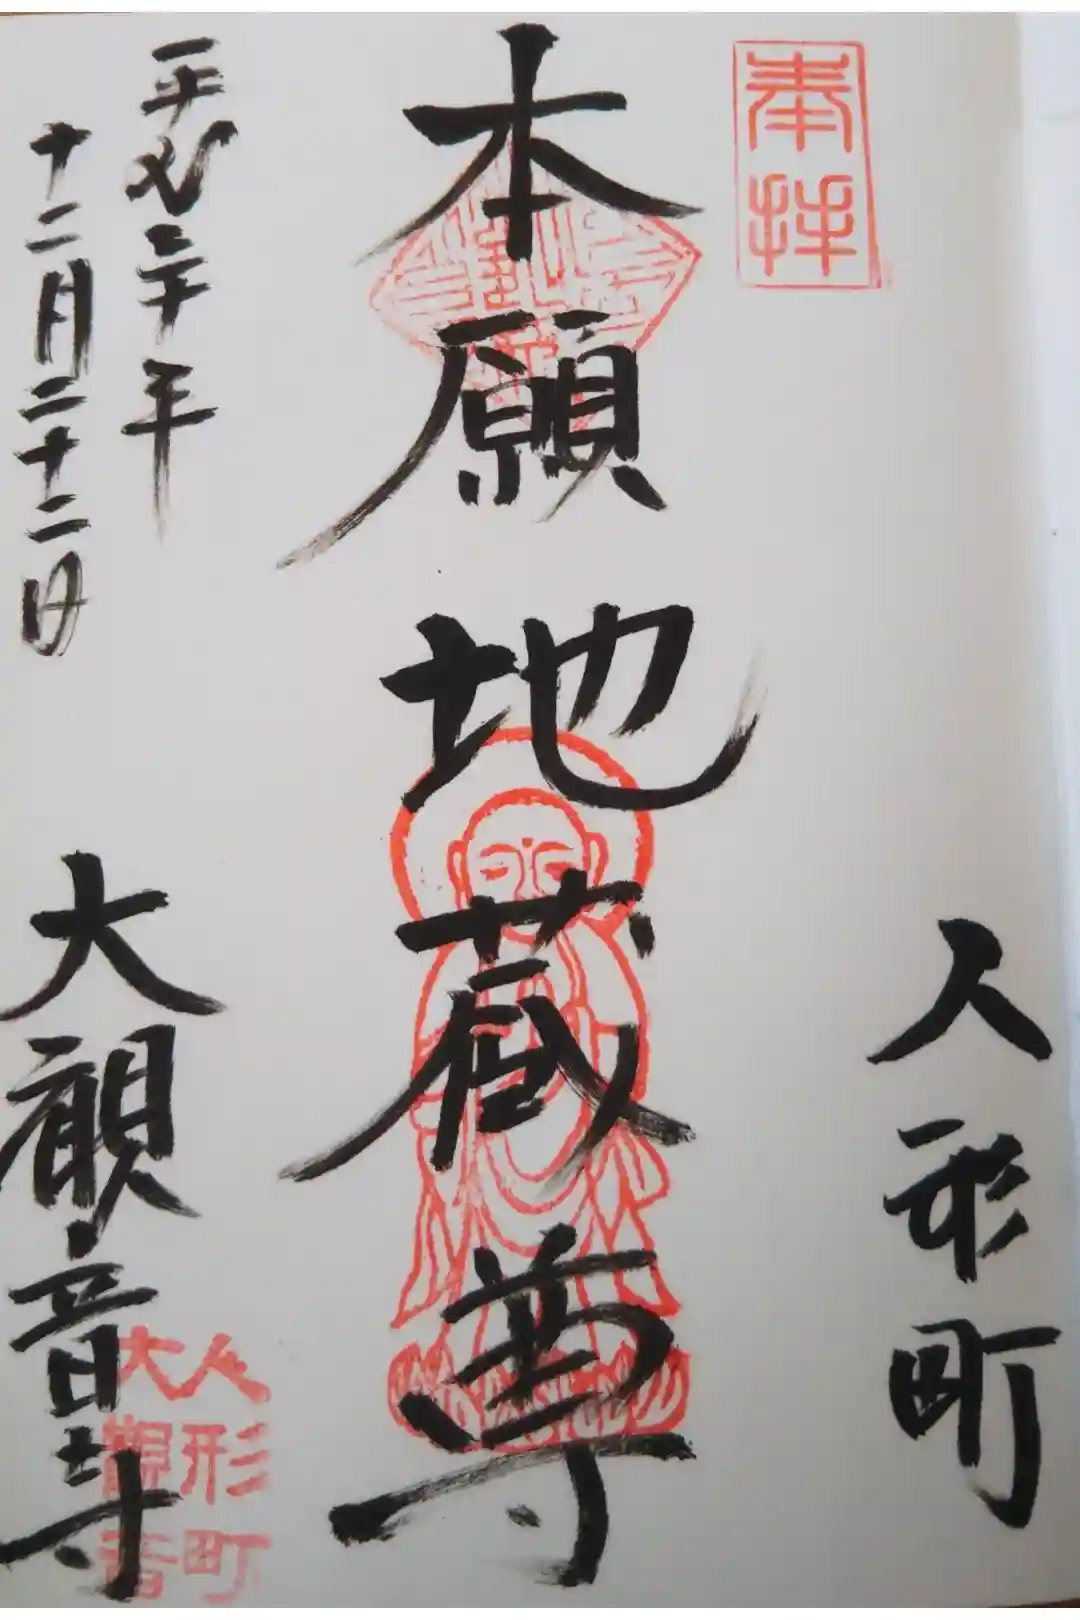 奉拝
人形町
本願地蔵尊
平成三十年
十二月二十二日
大観音寺
人形町
大觀音